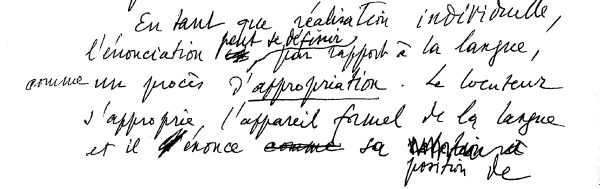 En tant que réalisation individuelle,
l'énonciation peut se définir, par rapport à la langue,
comme un procès d'appropriation. Le locuteur
s'approprie l'appareil formel de la langue
et il énonce comme sa
position de